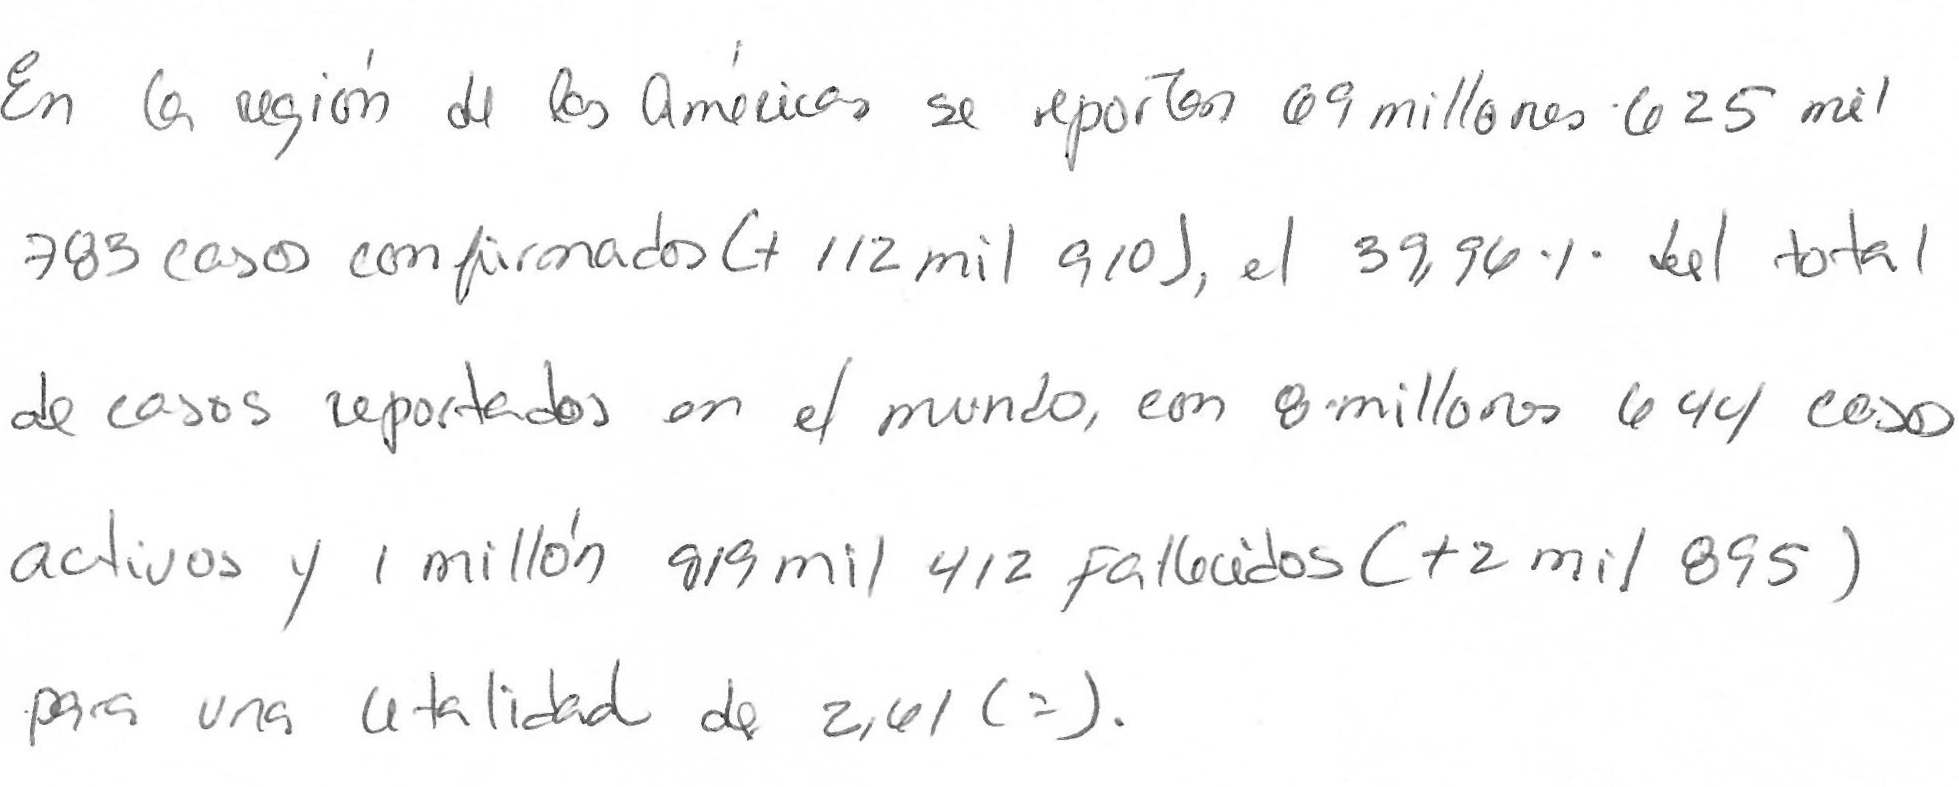 En la región de las Américas se reportan 69 millones 625 mil
783 casos confirmados (+ 112 mil 910), el 39,96 % del total
de casos reportados en el mundo, con 8 millones 644 casos
activos y 1 millón 819 mil 412 fallecidos (+2 mil 895)
para una letalidad de 2,61 (=).